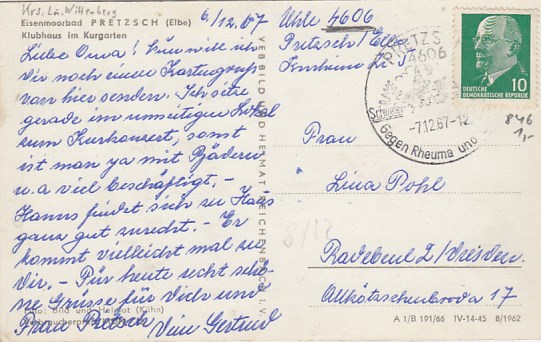 Krs. Lu. Wittenberg
Eisenmoorbad PRETZSCH (Elbe)
Klubhaus im Kurgarten
6/12.67
Liebe Oma! Nun will ich
Dir noch einen Kartengruß
von hier senden. Ich sitze
gerade im umseitigen Lokal
zum Kurkonzert, sonst
ist man ja mit Bädern
u.a. viel beschäftigt. -
Hanns findet sich zu Haus
ganz gut zurecht. - Er
kommt vielleicht mal zu
Dir. - Für heute recht schö-
ne Grüsse für Dich und
Frau Dein Gertrud
Foto: Bild und Heimat (Kühn)
VEB BILD UND HEIMAT REICHENBACH I. V.
Uhle 4606
Pretzsch/Elbe
Kurheim
PRETZS
4606
-7.12.67-12
Gegen Rheuma und
10
DEUTSCHE
DEMOKRATISCHE REPUBLIK
846
1,-
Frau
Lina Pohl
8/12
Radebeul 2/Dresden
Altkötzschenbroda 17
A 1/B 191/66 IV-14-45 8/1962